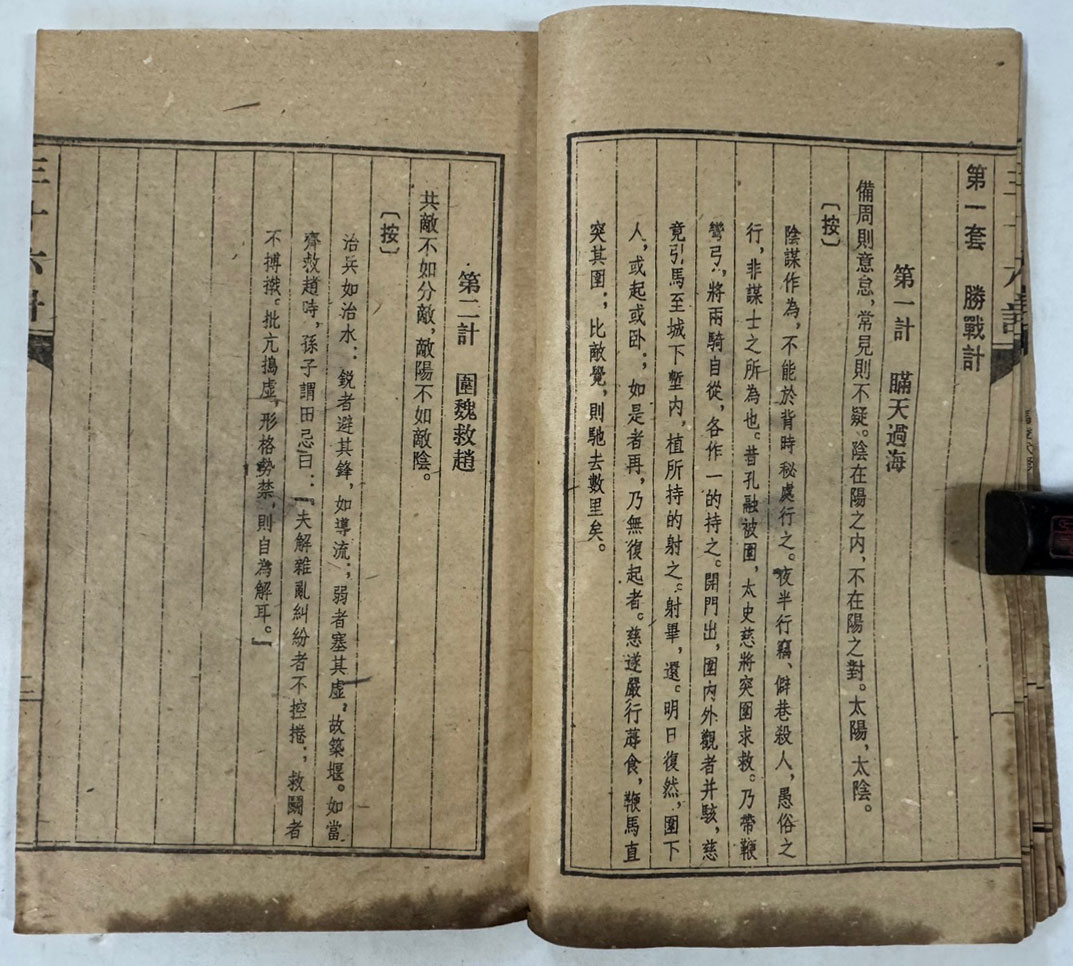 第一套　勝戰計
第一計　瞞天過海
備周則意怠，常見則不疑。陰在陽之内，不在陽之對。太陽，太陰。
〔按〕
陰謀作為，不能於背時秘處行之。夜半行竊、僻巷殺人，愚俗之
行，非謀士之所為也。昔孔融被圍，太史慈將突圍求救。乃帶鞭
彎弓，將兩騎自從，各作一的持之。開門出，圍内外觀者并駭，慈
竟引馬至城下塹内，植所持的射之。射畢，還。明日復然，圍下
人，或起或卧；如是者再，乃無復起者。慈遂嚴行蓐食，鞭馬直
突其圍；比敵覺，則馳去數里矣。
第二計　圍魏救趙
共敵不如分敵，敵陽不如敵陰。
〔按〕
治兵如治水：鋭者避其鋒，如導流；弱者塞其虛，故築堰。如當
齊救趙時，孫子謂田忌曰：『夫解雜亂糾紛者不控捲；救鬬者
不搏撠。批亢搗虛，形格勢禁，則自為解耳。』
三十六計
二